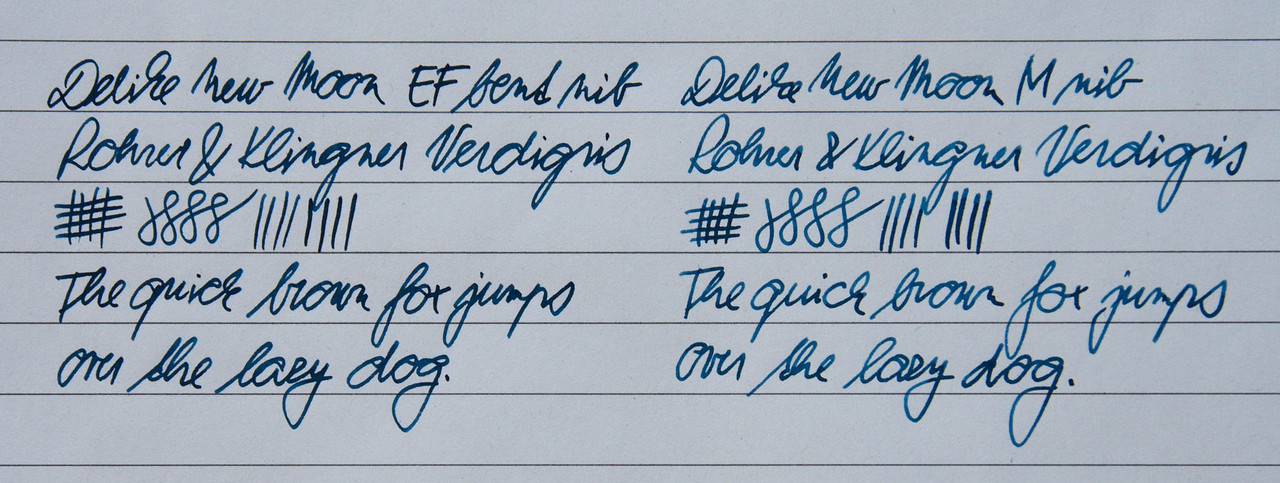 Delike New Moon EF bend nib
Rohrer & Klingner Verdigris
The quick brown fox jumps
over the lazy dog.
Delike New Moon M nib
Rohrer & Klingner Verdigris
The quick brown fox jumps
over the lazy dog.